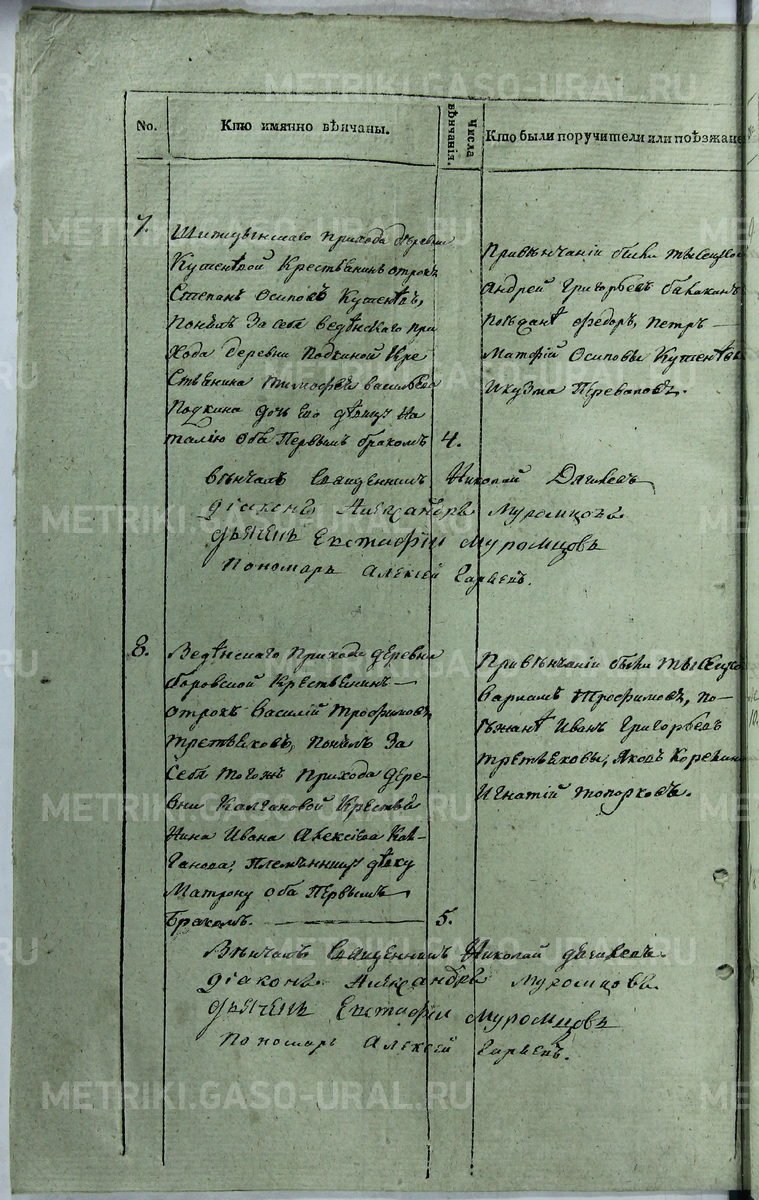 No.
Кто имянно вѣнчаны.
Числа вѣнчанія.
Кто были поручители или поѣзжане
7.
прихода деревни
Кутеневой Крестьянинъ отрокъ
Степанъ Осиповъ Кутеневъ,
Понялъ За себя веденскаго при
хода деревни Подкиной Кре
стьянина Тимофея васильева
Подкина дочь ево дѣвицу На
талію оба Первымъ бракомъ
4.
Привѣнчаніи были тысецкой
Андрей Григорьевъ
поѣзжанѣ Федоръ, Петръ —
Матфій Осиповы Кутеневы
И кузма Переваловъ.
вѣнчалъ Священникъ Николай Дягилевъ
діаконъ Александръ Муромцовъ
дьячекъ Евстафіи Муромцовъ
Пономарь Алексѣй
8.
Веденскаго Прихода деревни
боровской Крестьянинъ —
отрокъ Василій Трофимовъ
Третьяковъ, Понялъ За
Себя тогожъ Прихода дере-
вни Калгановой Крестья
нина Ивана Алексѣева Кал-
ганова, Племянницу дѣвку
Матрону оба Первымъ
Бракомъ.
5.
Привѣнчаніи были тысецкой
варламъ Трофимовъ, по-
ѣзжанѣ Иванъ Григорьевъ
третьяковы, Яковъ Корекинъ
Игнатій топорковъ.
Вѣнчалъ Священникъ Николай дягилевъ
діаконъ Александръ Муромцовъ
дьячекъ Евстафіи Муромцовъ
Пономарь Алексѣй
METRIKI.GASO-URAL.RU